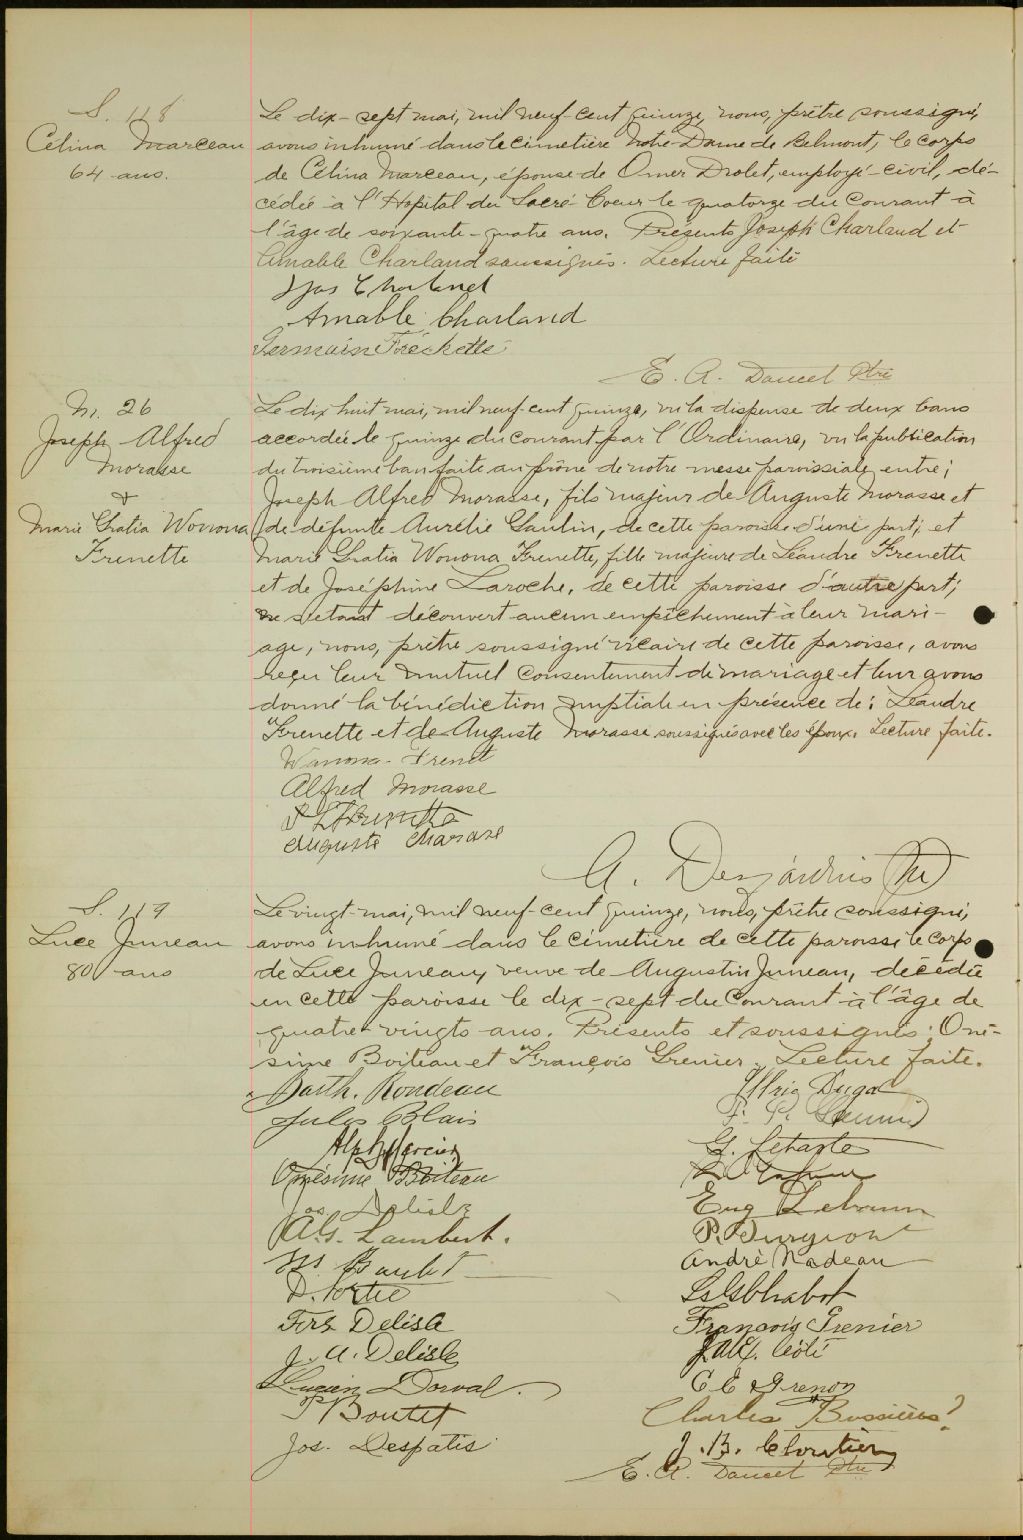 S. 118
Célina Marceau
64 ans.
Le dix-sept mai, mil neuf-cent quinze, nous, prêtre soussigné,
avons inhumé dans le cimetière Notre-Dame de Belmont, le corps
de Célina Marceau, épouse de Omer Drolet, employé-civil, dé-
cédée à l'Hôpital du Sacré-Coeur le quatorze du courant à
l'âge de soixante-quatre ans. Présents Joseph Charland et
Amable Charland soussignés. Lecture faite
Jos Charland
Amable Charland
Germaine Fréchette
E. A. Doucet Ptre
M. 26
Joseph Alfred
Morasse
&
Marie Gratia Wonona
Frenette
Le dix huit mai, mil neuf-cent quinze, vu la dispense de deux bans
accordée le quinze du courant par l'Ordinaire, vu la publication
du troisième ban faite au prône de notre messe paroissiale, entre;
Joseph Alfred Morasse, fils majeur de Auguste Morasse et
de défunte Aurélie Gaulin, de cette paroisse d'une part; et
Marie Gratia Wonona Frenette, fille majeure de Léandre Frenette
et de Joséphine Laroche, de cette paroisse d'autre part;
ne s'étant découvert aucun empêchement à leur mari-
age, nous, prêtre soussigné vicaire de cette paroisse, avons
reçu leur mutuel consentement de mariage et leur avons
donné la bénédiction nuptiale en présence de: Léandre
Frenette et de Auguste Morasse soussignés avec les époux. Lecture faite.
Wonona Frenet
Alfred Morasse
L Frenette
Auguste Marasse
A. Desjardins Ptre
S. 119
Luce Juneau
80 ans
Le vingt-mai, mil neuf-cent quinze, nous, prêtre soussigné,
avons inhumé dans le cimetière de cette paroisse le corps
de Luce Juneau, veuve de Augustin Juneau, décédée
en cette paroisse le dix-sept du courant à l'âge de
quatre-vingts ans. Présents et soussignés: Oné-
sime Boiteau et François Grenier. Lecture faite.
Barth. Rondeau
Ulric Dugal
Jules Blais
F. P.
Alph Mercier
G. Letarte
Onésime Boiteau
Jos Delisle
Eug Lebrun
A. G. Lambert.
P. Turgeon
André Nadeau
D. Fortie
Ls G Chabot
Frs Delisle
François Grenier
J. A. Delisle
Côté
Lucien Dorval
C E Grenon
P Boutet
Charles Bussières
Jos. Despatis
J. B. Cloutier
E. A. Doucet Ptre